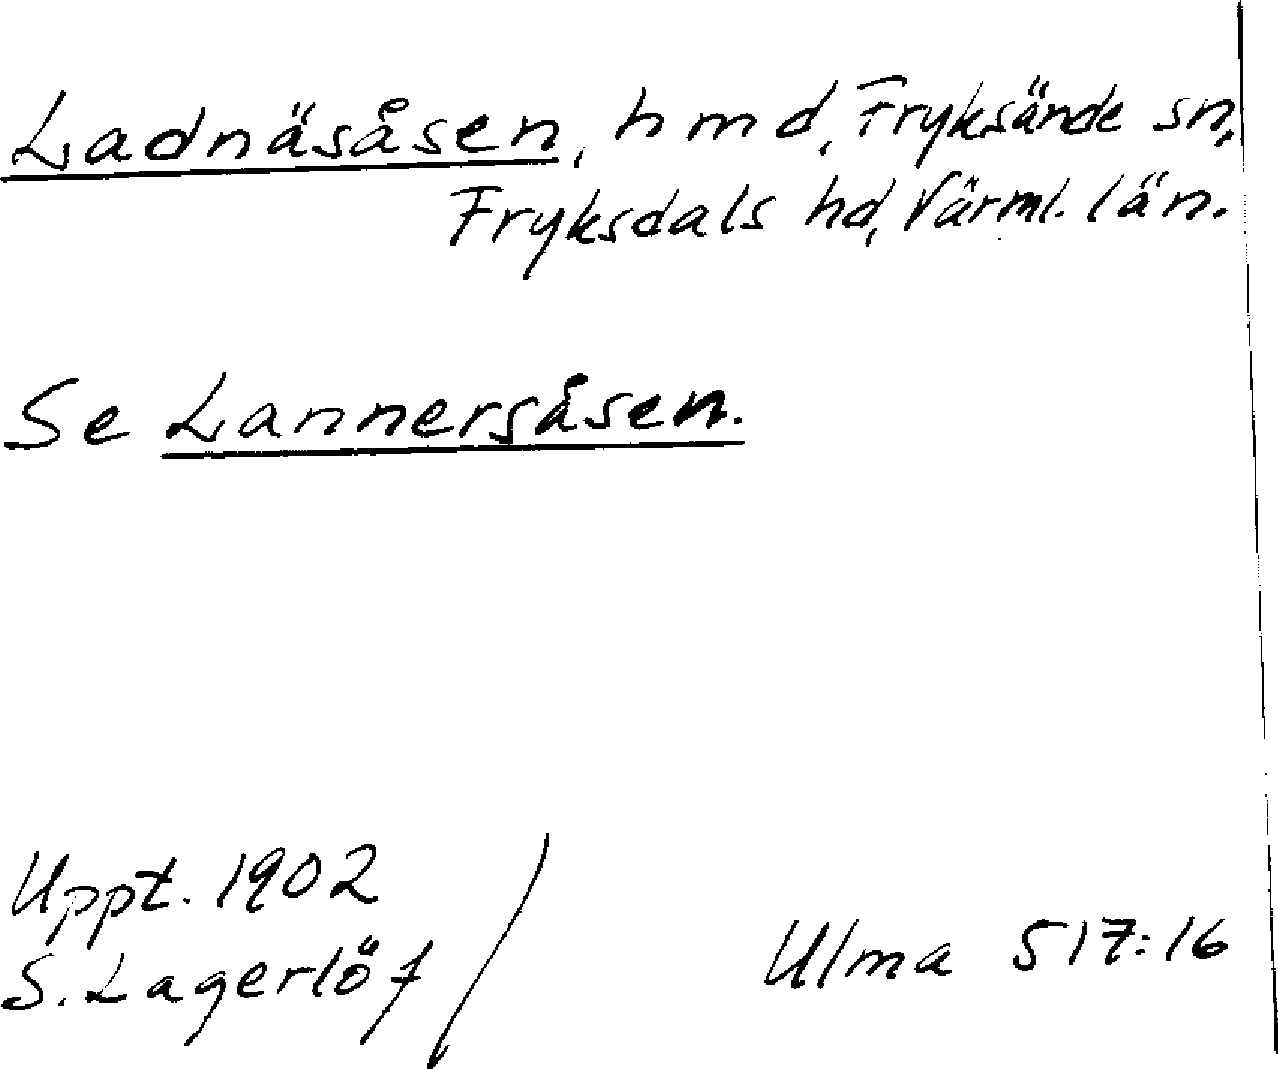 Ladnäsåsen, hmd, Fryksände sn,
Fryksdals hd, Värml. län.
Se Lannersåsen.
Uppt. 1902
S. Lagerlöf
Ulma 517:16